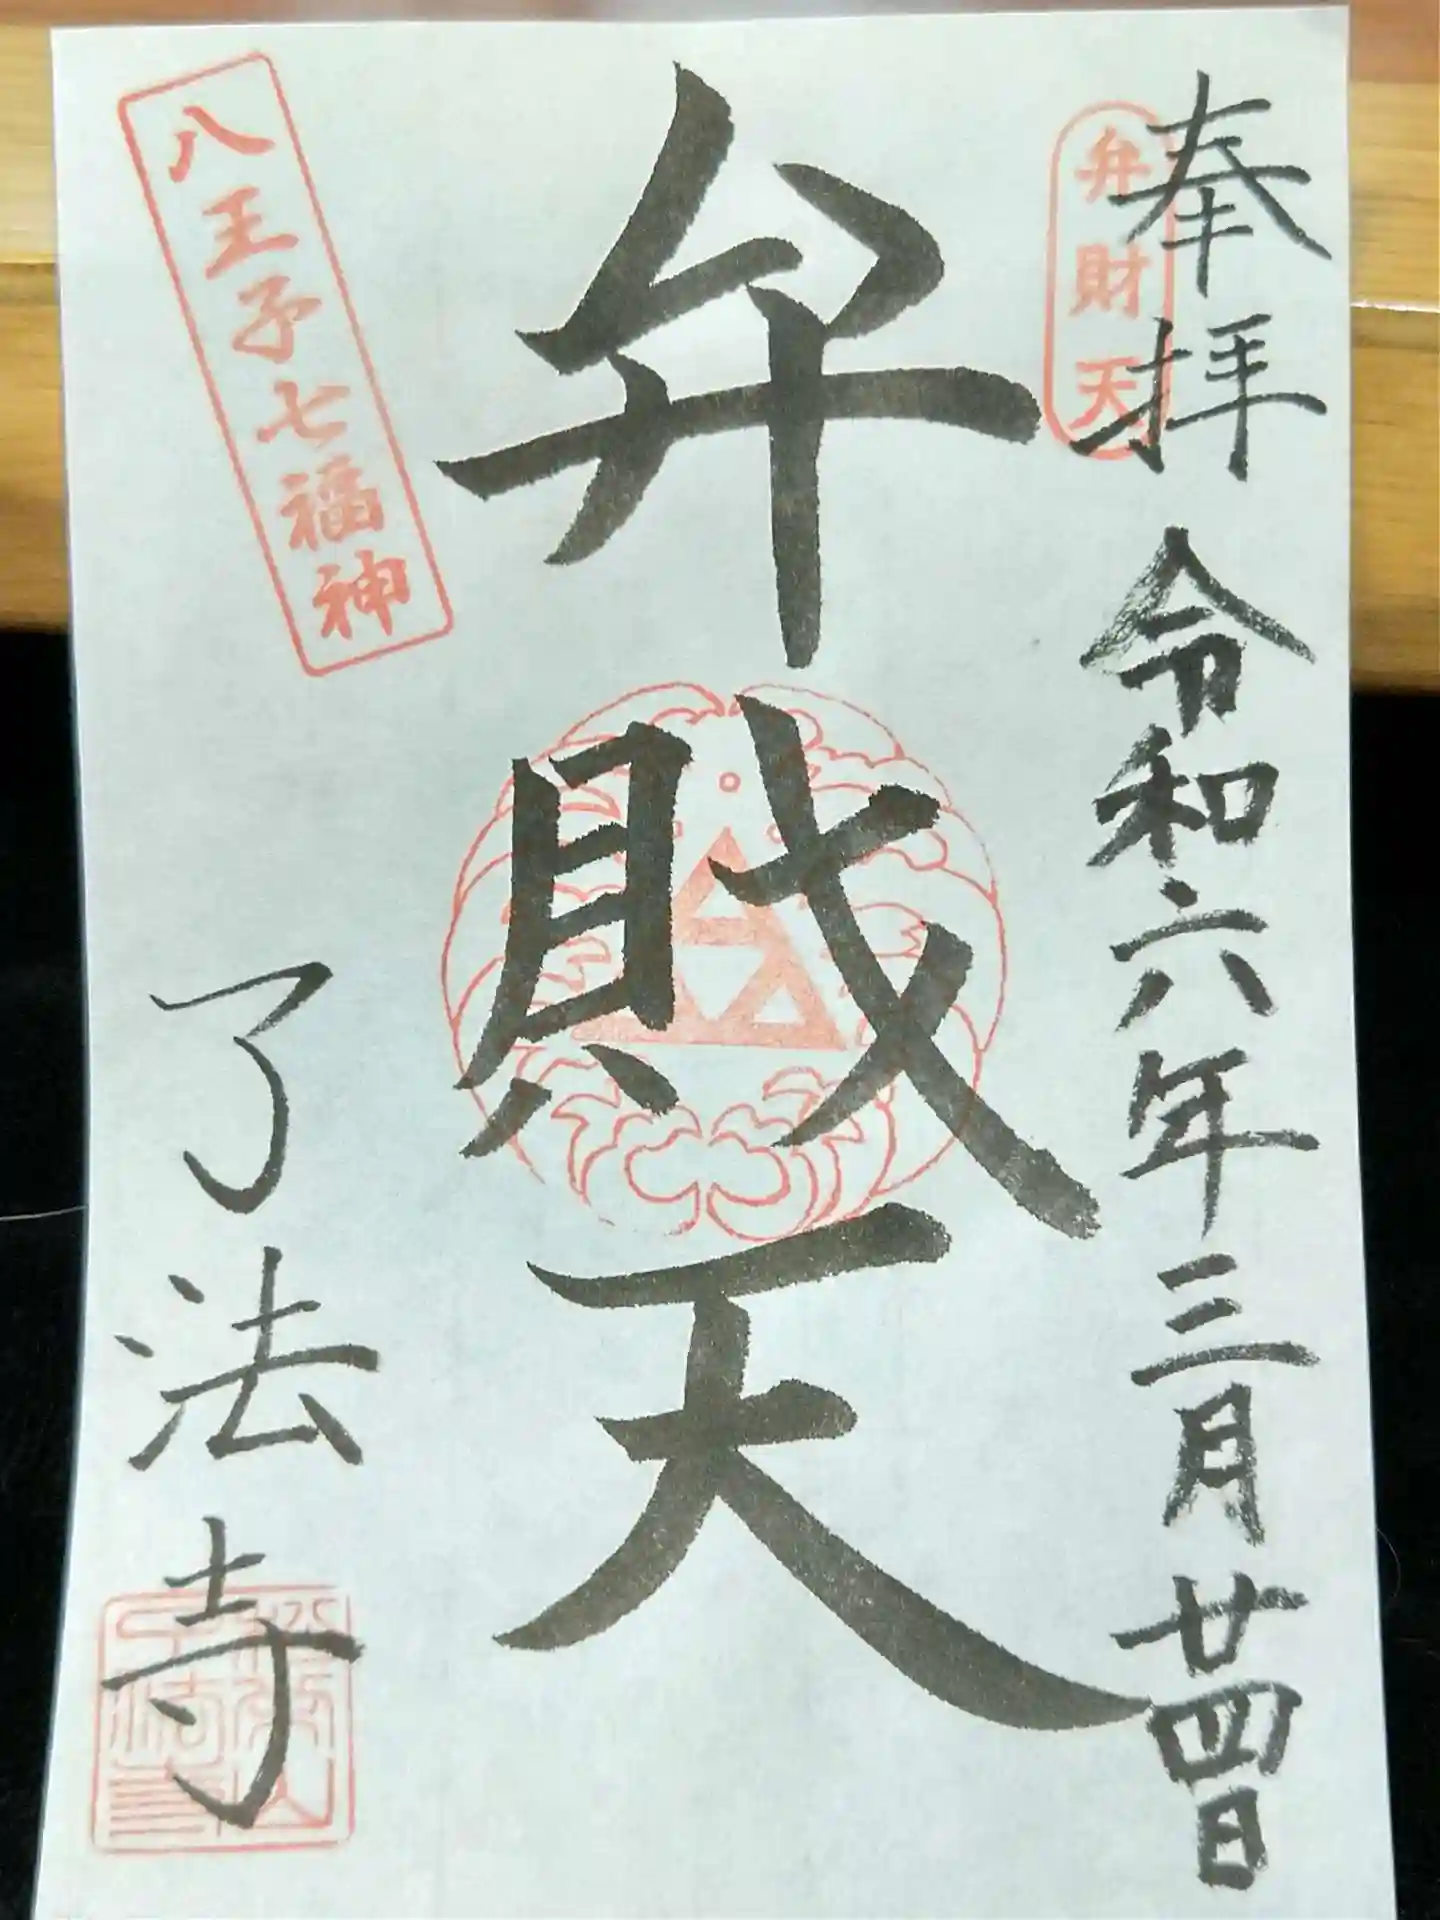 奉拝 令和六年三月廿四日
弁財天
弁財天
八王子七福神
了法寺